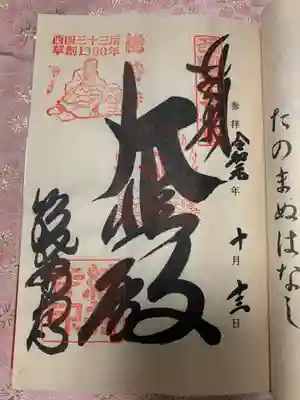 たのまぬはなし
奉拝
参拝令和元年十月十三日
西国三十三所
草創1300年
大悲殿
総持寺